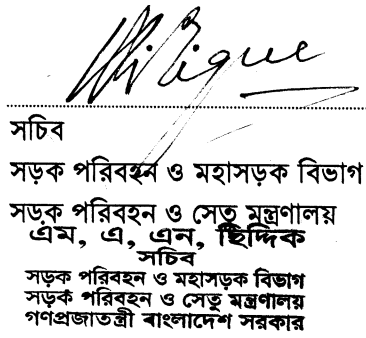 সচিব
সড়ক পরিবহন ও মহাসড়ক বিভাগ
সড়ক পরিবহন ও সেতু মন্ত্রণালয়
এম, এ, এন, ছিদ্দিক
সচিব
সড়ক পরিবহন ও মহাসড়ক বিভাগ
সড়ক পরিবহন ও সেতু মন্ত্রণালয়
গণপ্রজাতন্ত্রী বাংলাদেশ সরকার